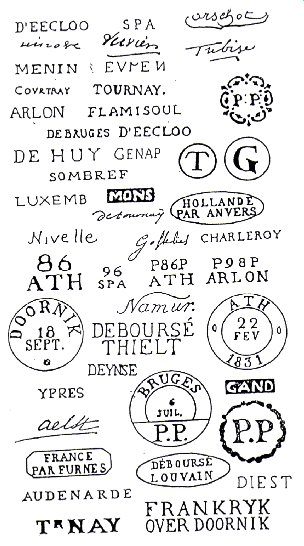 D'EECLOO SPA arschot
ninove Verviers Tubise
MENIN EVMEN
COVRTRAY TOURNAY. P.P.
ARLON FLAMISOUL
DE BRUGES D'EECLOO
DE HUY GENAP T G
SOMBREF
LUXEMB MONS HOLLANDE PAR ANVERS
de tournay
Nivelle CHARLEROY
86 ATH
96 SPA
P86P ATH
P98P ARLON
Namur.
DOORNIK 18 SEPT.
DEBOURSÉ THIELT
ATH 22 FEV 1831
DEYNSE
YPRES
BRUGES 6 JUIL. P.P.
GAND
aelst
P.P.
FRANCE PAR FURNES
DÉBOURSÉ LOUVAIN
DIEST
AUDENARDE
TR NAY
FRANKRYK OVER DOORNIK